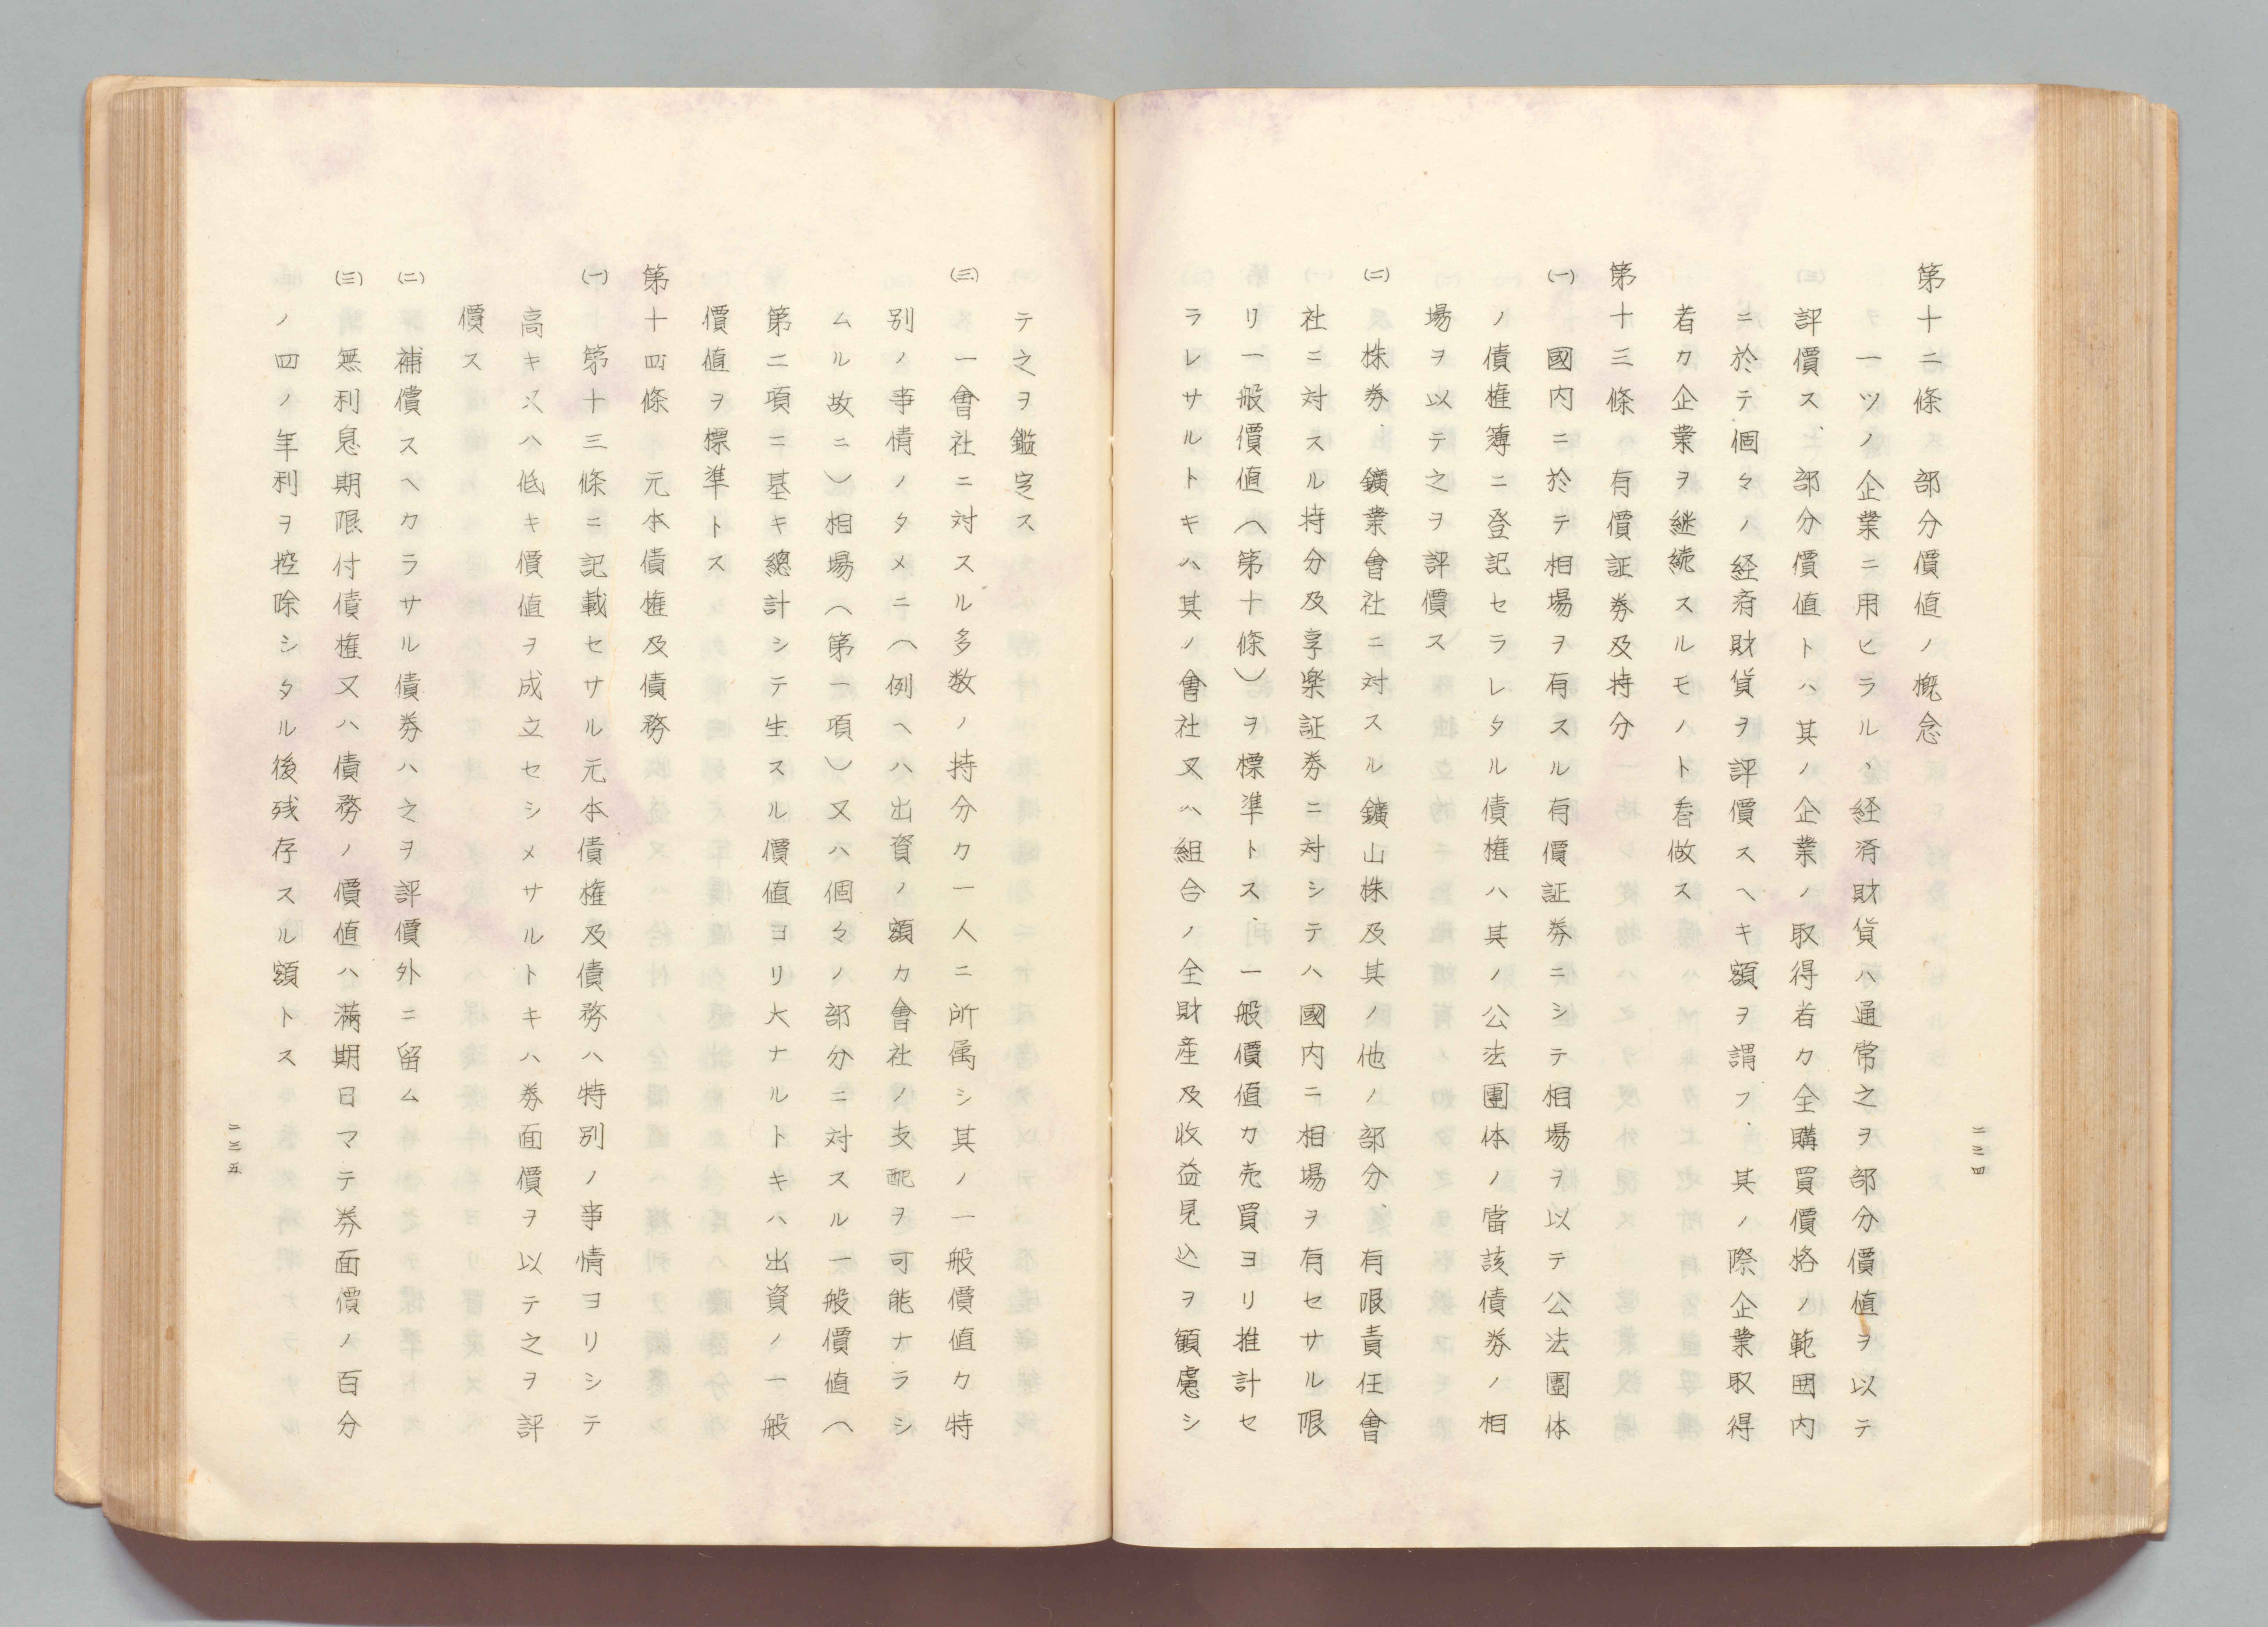 第十二條　部分價値ノ概念
一ツノ企業ニ用ヒラル、経済財貨ハ通常之ヲ部分價値ヲ以テ
評價ス、部分價値トハ其ノ企業ノ取得者カ全購買價格ノ範囲内
ニ於テ個々ノ経済財貨ヲ評價スヘキ額ヲ謂フ、其ノ際企業取得
者カ企業ヲ継続スルモノト看做ス
第十三條　有價証券及持分
(一)　國内ニ於テ相場ヲ有スル有價証券ニシテ相場ヲ以テ公法團体
ノ債権簿ニ登記セラレタル債権ハ其ノ公法團体ノ當該債券ノ相
場ヲ以テ之ヲ評價ス
(二)　株券、鑛業會社ニ対スル鑛山株及其ノ他ノ部分、有限責任會
社ニ対スル持分及享楽証券ニ対シテハ國内ニ相場ヲ有セサル限
リ一般價値(第十條)ヲ標準トス、一般價値カ売買ヨリ推計セ
ラレサルトキハ其ノ會社又ハ組合ノ全財産及收益見込ヲ顧慮シ
二三四
テ之ヲ鑑定ス
(三)　一會社ニ対スル多数ノ持分カ一人ニ所属シ其ノ一般價値カ特
別ノ事情ノタメニ(例ヘハ出資ノ額カ會社ノ支配ヲ可能ナラシ
ムル故ニ)相場(第一項)又ハ個々ノ部分ニ対スル一般價値(
第二項ニ基キ總計シテ生スル價値ヨリ大ナルトキハ出資ノ一般
價値ヲ標準トス
第十四條　元本債権及債務
(一)　第十三條ニ記載セサル元本債権及債務ハ特別ノ事情ヨリシテ
高キ又ハ低キ價値ヲ成立セシメサルトキハ券面價ヲ以テ之ヲ評
價ス
(二)　補償スヘカラサル債券ハ之ヲ評價外ニ留ム
(三)　無利息期限付債権又ハ債務ノ價値ハ滿期日マテ券面價ノ百分
ノ四ノ年利ヲ控除シタル後残存スル額トス
二三五